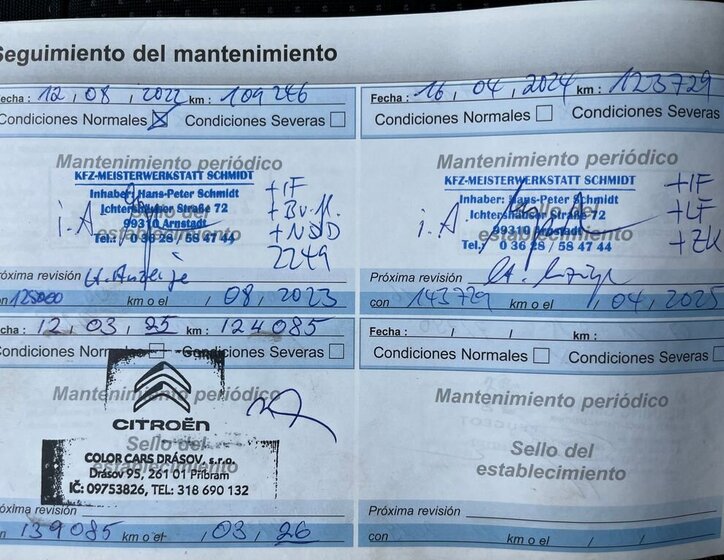 Seguimiento del mantenimiento
Fecha: 12, 08, 2022 km: 109246
Condiciones Normales ☒ Condiciones Severas ☐
Mantenimiento periódico
KFZ-MEISTERWERKSTATT SCHMIDT
Inhaber: Hans-Peter Schmidt
Ichtershäuser Straße 72
99310 Arnstadt
Tel.: 0 36 28 / 58 47 44
Sello del
establecimiento
i.A.
+IF
2249
Próxima revisión lt. Anzeige
con 125000 km o el , 08, 2023
Fecha: 16, 04, 2024 km: 123729
Condiciones Normales ☐ Condiciones Severas ☐
Mantenimiento periódico
KFZ-MEISTERWERKSTATT SCHMIDT
Inhaber: Hans-Peter Schmidt
Ichtershäuser Straße 72
99310 Arnstadt
Tel.: 0 36 28 / 58 47 44
Sello del
establecimiento
i.A.
+IF
+LF
+ZK
Próxima revisión lt. Anzeige
con 143729 km o el , 04, 2025
Fecha: 12, 03, 25 km: 124085
Condiciones Normales ☐ Condiciones Severas ☐
Mantenimiento periódico
CITROËN
Sello del
establecimiento
COLOR CARS DRÁSOV, s.r.o.
Drásov 95, 261 01 Příbram
IČ: 09753826, TEL: 318 690 132
Próxima revisión
con 139085 km o el , 03, 26
Fecha: / / km:
Condiciones Normales ☐ Condiciones Severas ☐
Mantenimiento periódico
Sello del
establecimiento
Próxima revisión
con km o el / /